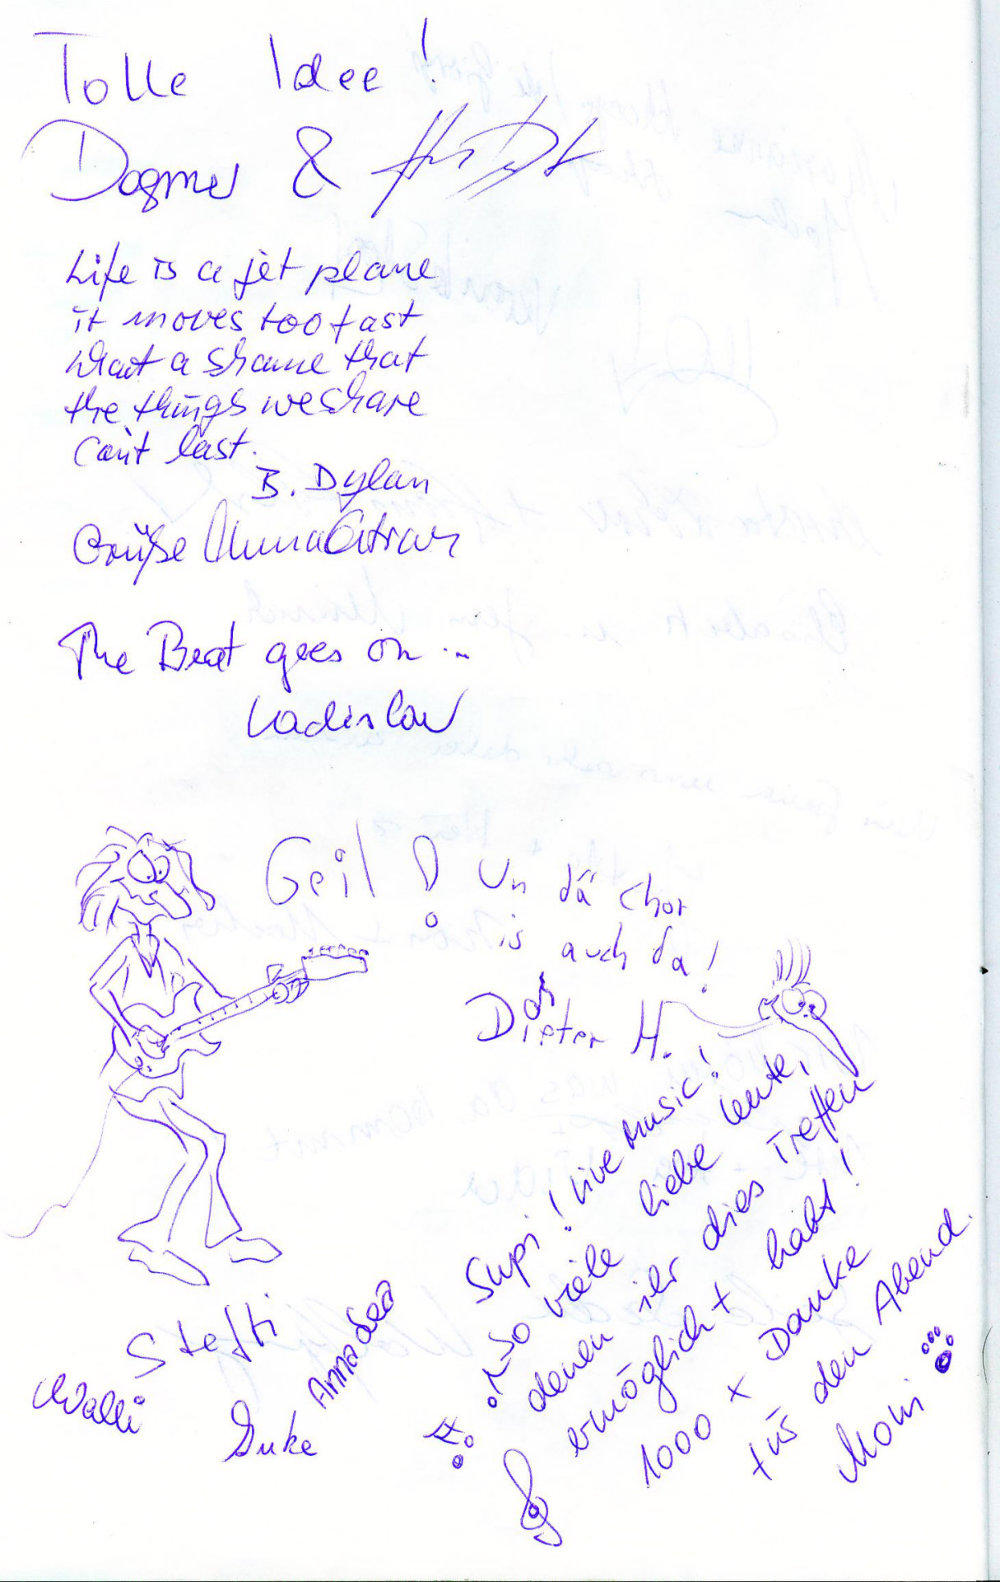 Tolle Idee!
Dagmar &
Life is a jet plane
it moves too fast
What a shame that
the things we share
can't last.
B. Dylan
Grüße
The Beat goes on...
Ladislav
Geil! Un dä Chor
is auch da!
Das
Dieter H.
Supi! Live Music!
So viele liebe Leute,
denen ihr dies Treffen
ermöglicht habt!
1000 x Danke
für den Abend.
Moni
Steffi
Walli
Suke
Annadea